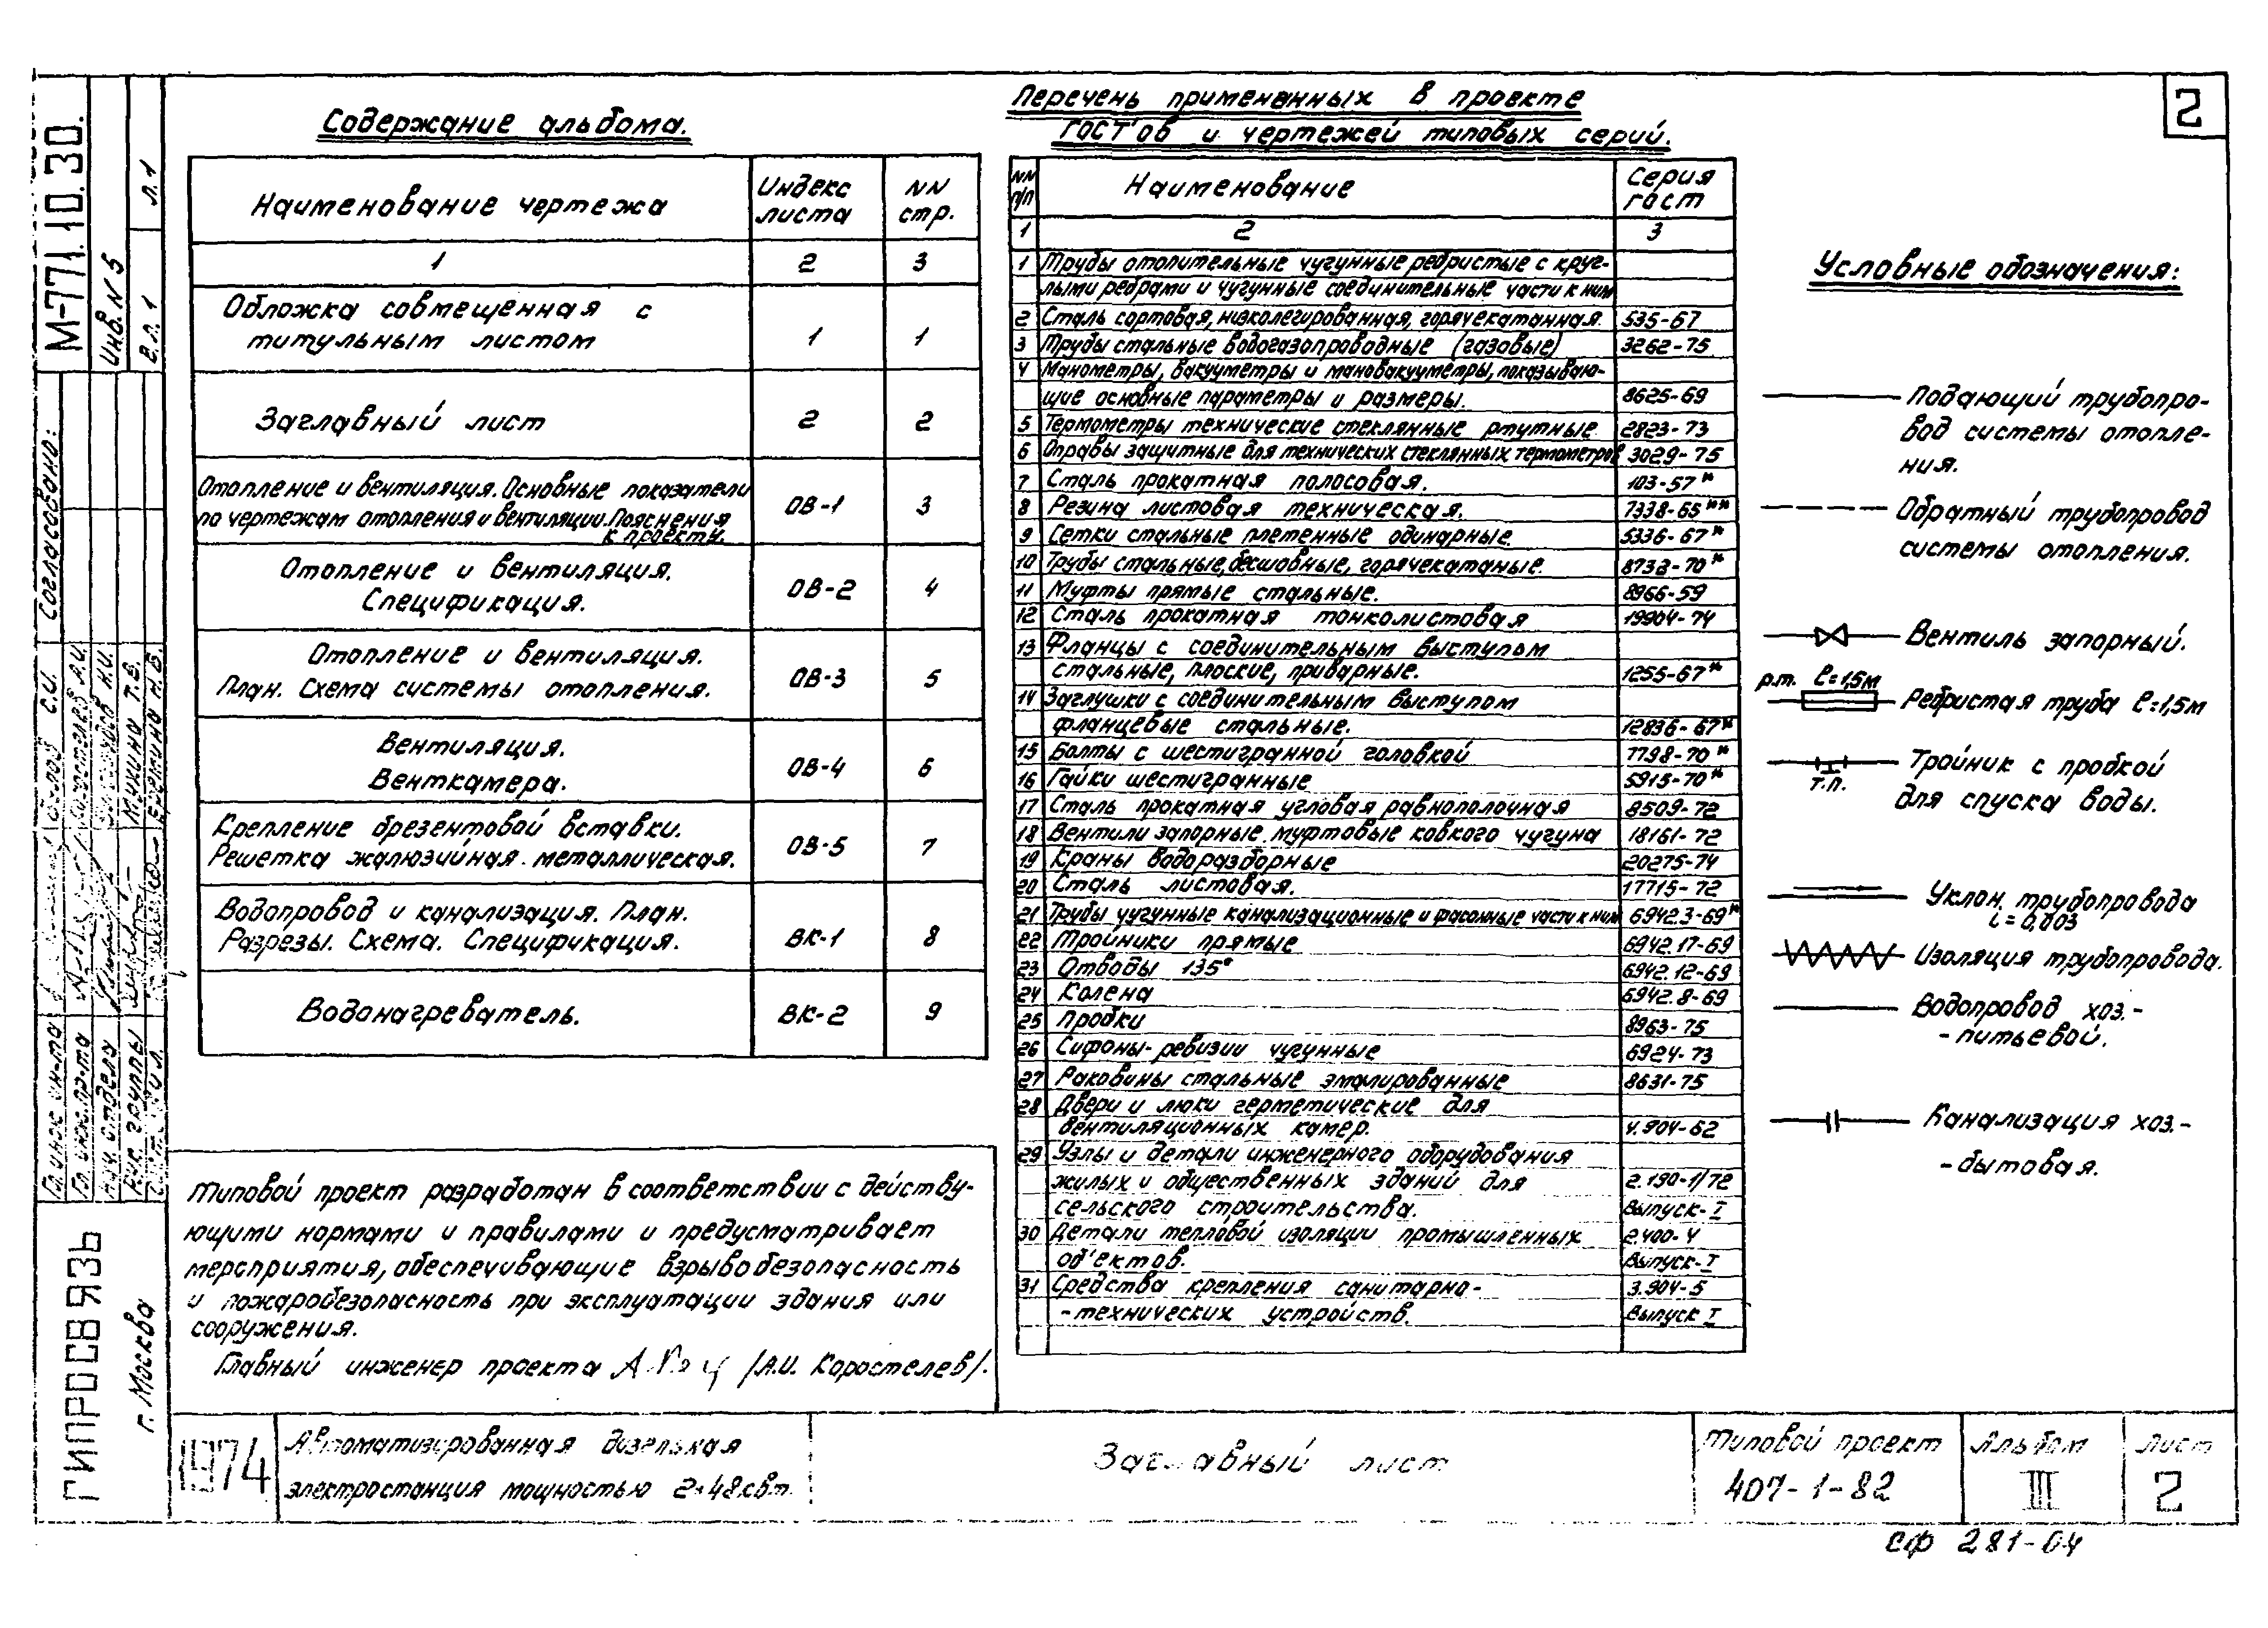 2
Содержание альбома.
Наименование чертежа
Индекс листа
NN стр.
1 2 3
Обложка совмещенная с
титульным листом 1 1
Заглавный лист 2 2
Отопление и вентиляция. Основные показатели
по чертежам отопления и вентиляции. Пояснения
к проекту. ОВ-1 3
Отопление и вентиляция.
Спецификация. ОВ-2 4
Отопление и вентиляция.
План. Схема системы отопления. ОВ-3 5
Вентиляция.
Венткамера. ОВ-4 6
Крепление брезентовой вставки.
Решетка жалюзийная металлическая. ОВ-5 7
Водопровод и канализация. План.
Разрезы. Схема. Спецификация. ВК-1 8
Водонагреватель. ВК-2 9
Типовой проект разработан в соответствии с действу-
ющими нормами и правилами и предусматривает
мероприятия, обеспечивающие взрывобезопасность
и пожаробезопасность при эксплуатации здания или
сооружения.
Главный инженер проекта /А.И. Коростелев/.
Перечень примененных в проекте
ГОСТ'ов и чертежей типовых серий.
NN п/п
Наименование
Серия гост
1 2 3
1 Трубы отопительные чугунные ребристые с круг-
лыми ребрами и чугунные соединительные части к ним
2 Сталь сортовая, низколегированная, горячекатанная. 535-67
3 Трубы стальные водогазопроводные (газовые) 3262-75
4 Манометры, вакууметры и мановакууметры, показываю-
щие основные параметры и размеры. 8625-69
5 Термометры технические стеклянные ртутные 2823-73
6 Оправы защитные для технических стеклянных термометров 3029-75
7 Сталь прокатная полосовая. 103-57*
8 Резина листовая техническая. 7338-65**
9 Сетки стальные плетенные одинарные. 5336-67*
10 Трубы стальные, бесшовные, горячекатаные. 8732-70*
11 Муфты прямые стальные. 8966-59
12 Сталь прокатная тонколистовая 19904-74
13 Фланцы с соединительным выступом
стальные, плоские, приварные. 1255-67*
14 Заглушки с соединительным выступом
фланцевые стальные. 12836-67*
15 Болты с шестигранной головкой 7798-70*
16 Гайки шестигранные 5915-70*
17 Сталь прокатная угловая равнополочная 8509-72
18 Вентили запорные муфтовые ковкого чугуна 18161-72
19 Краны водоразборные 20275-74
20 Сталь листовая. 17715-72
21 Трубы чугунные канализационные и фасонные части к ним 6942.3-69*
22 Тройники прямые 6942.17-69
23 Отводы 135° 6942.12-69
24 Колена 6942.8-69
25 Пробки 8963-75
26 Сифоны-ревизии чугунные 6924-73
27 Раковины стальные эмалированные 8631-75
28 Двери и люки герметические для
вентиляционных камер. 4.904-62
29 Узлы и детали инженерного оборудования
жилых и общественных зданий для 2.190-1/72
сельского строительства. Выпуск-I
30 Детали тепловой изоляции промышленных 2.400-4
об'ектов. Выпуск-I
31 Средства крепления санитарно- 3.904-5
-технических устройств. Выпуск I
Условные обозначения:
Подающий трубопро-
вод системы отопле-
ния.
Обратный трубопровод
системы отопления.
Вентиль запорный.
р.т. ℓ=1,5м
Ребристая труба ℓ=1,5м
Тройник с пробкой
т.п.
для спуска воды.
Уклон трубопровода
i=0,003
Изоляция трубопровода.
Водопровод хоз.-
-питьевой.
Канализация хоз.-
-бытовая.
М-771.10.30.
Инв. N 5
г.л. 1
л. 1
Согласовано:
Гл. инж. ин-та
Гл. инж. пр-та
Нач. отдела
Рук. группы
Мухина Т.В.
ГИПРОСВЯЗЬ
г. Москва
1974
Автоматизированная дизельная
электростанция мощностью 2×48квт.
Заглавный лист
Типовой проект
407-1-82
Альбом
III
Лист
2
СФ 281-04